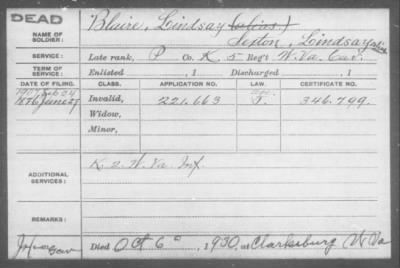 DEAD
NAME OF SOLDIER:
Blaire, Lindsay (alias.)
Sexton, Lindsay
SERVICE:
Late rank, P Co. K, 5 Reg't W. Va. Cav.
TERM OF SERVICE:
Enlisted , 1 Discharged , 1
DATE OF FILING. CLASS. APPLICATION NO. LAW. CERTIFICATE NO.
1876 June 27 Invalid, 221.663 346.799
Widow,
Minor,
ADDITIONAL SERVICES:
K. 2. W. Va. Inf.
REMARKS:
Died Oct 6 , 1930, at Clarksburg W Va